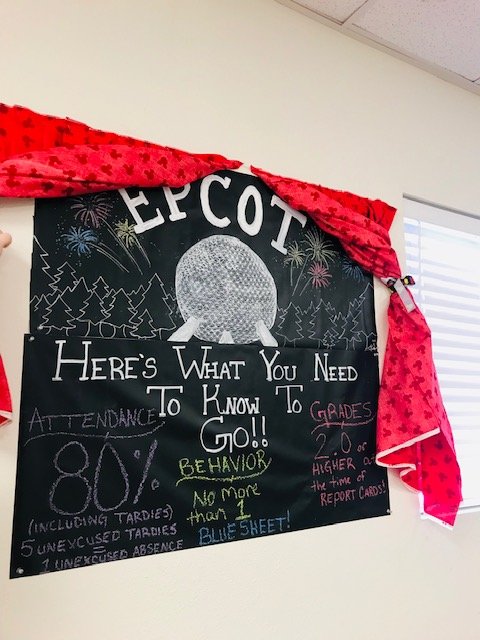 EPCOT
HERE'S WHAT YOU NEED
TO KNOW TO
GO!!
ATTENDANCE
80%
(INCLUDING TARDIES)
5 UNEXCUSED TARDIES
=
1 UNEXCUSED ABSENCE
BEHAVIOR
No more
than 1
BLUE SHEET!
GRADES
2.0 or
HIGHER at
the time of
REPORT CARDS!